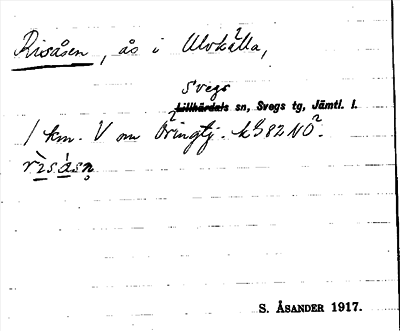 Risåsen, ås i Ulvkälla,
Svegs
Lillhärdals sn, Svegs tg, Jämtl. l.
1 km. V om Öringtj. kbl 82 NO.
S. ÅSANDER 1917.